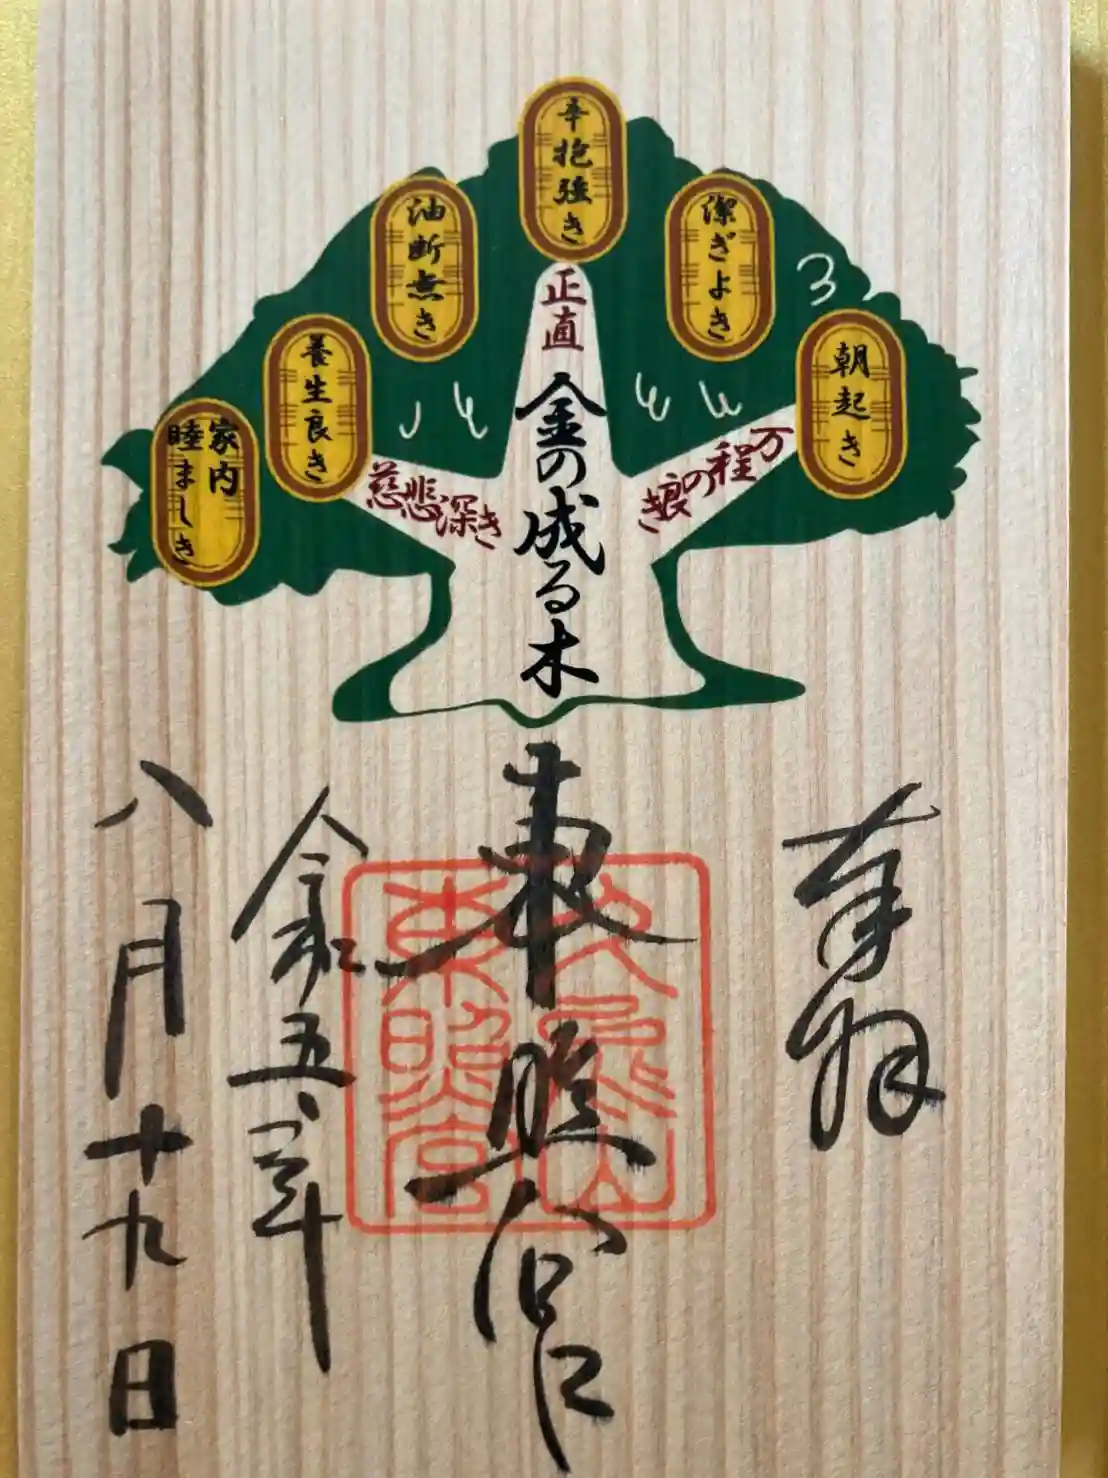 朝起き
潔ぎよき
辛抱強き
油断無き
養生良き
家内
睦ましき
万程の良き
正直
慈悲深き
金の成る木
奉拝
東照宮
久能山
東照宮
令和五年
八月十九日